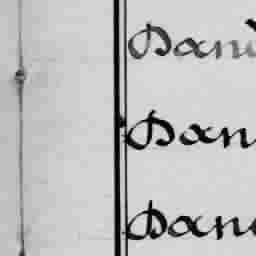 Dan
Dan
Dan